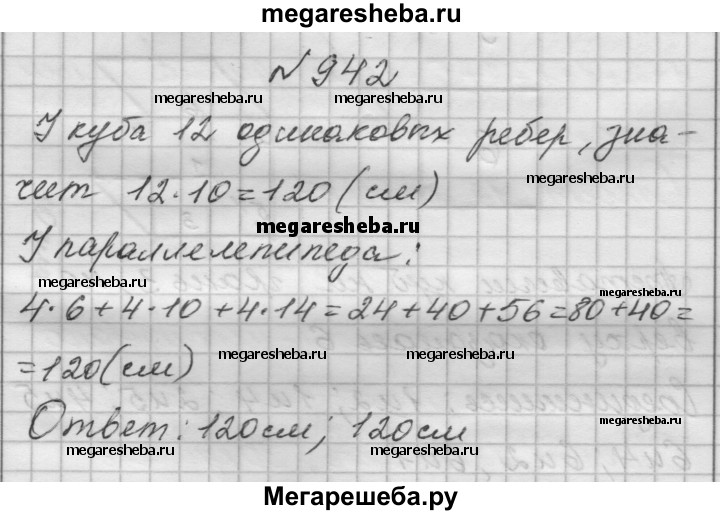 megaresheba.ru
№ 942
megaresheba.ru megaresheba.ru
У куба 12 одинаковых ребер, зна-
megaresheba.ru
чит 12·10=120 (см)
megaresheba.ru
У параллелепипеда:
megaresheba.ru megaresheba.ru
4·6+4·10+4·14=24+40+56=80+40=
megaresheba.ru megaresheba.ru
=120(см)
Ответ: 120см; 120см
megaresheba.ru
megaresheba.ru megaresheba.ru
Мегарешеба.ру